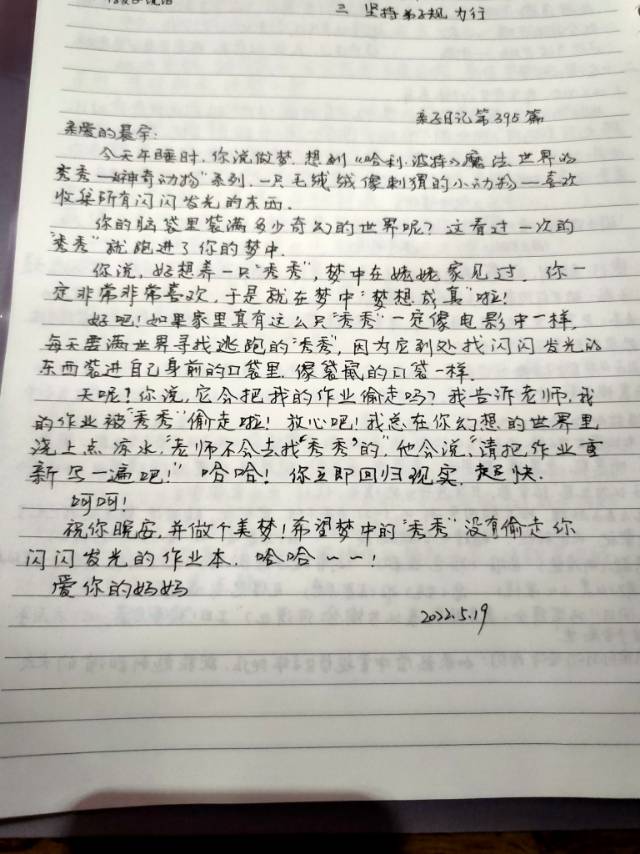 三 坚持弟子规 力行
亲子日记第395篇
亲爱的晨宇:
今天午睡时,你说做梦,想到《哈利·波特》魔法世界的
秀秀—"神奇动物"系列,一只毛绒绒像刺猬的小动物—喜欢
收集所有闪闪发光的东西.
你的脑袋里装满多少奇幻的世界呢?这看过一次的
"秀秀"就跑进了你的梦中.
你说,好想养一只"秀秀",梦中在姥姥家见过.你一
定非常非常喜欢,于是就在梦中"梦想成真"啦!
好吧!如果家里真有这么只"秀秀"一定像电影中一样,
每天要满世界寻找逃跑的"秀秀",因为它到处找闪闪发光的
东西装进自己身前的口袋里.像袋鼠的口袋一样.
天呢?你说,它会把我的作业偷走吗?我告诉老师,我
的作业被"秀秀"偷走啦!放心吧!我总在你幻想的世界里
浇上点凉水,"老师不会去找"秀秀"的",他会说,"请把作业重
新写一遍吧!"哈哈!你立即回归现实,超快.
呵呵!
祝你晚安,并做个美梦!希望梦中的"秀秀"没有偷走你
闪闪发光的作业本.哈哈~~!
爱你的妈妈
2022.5.19